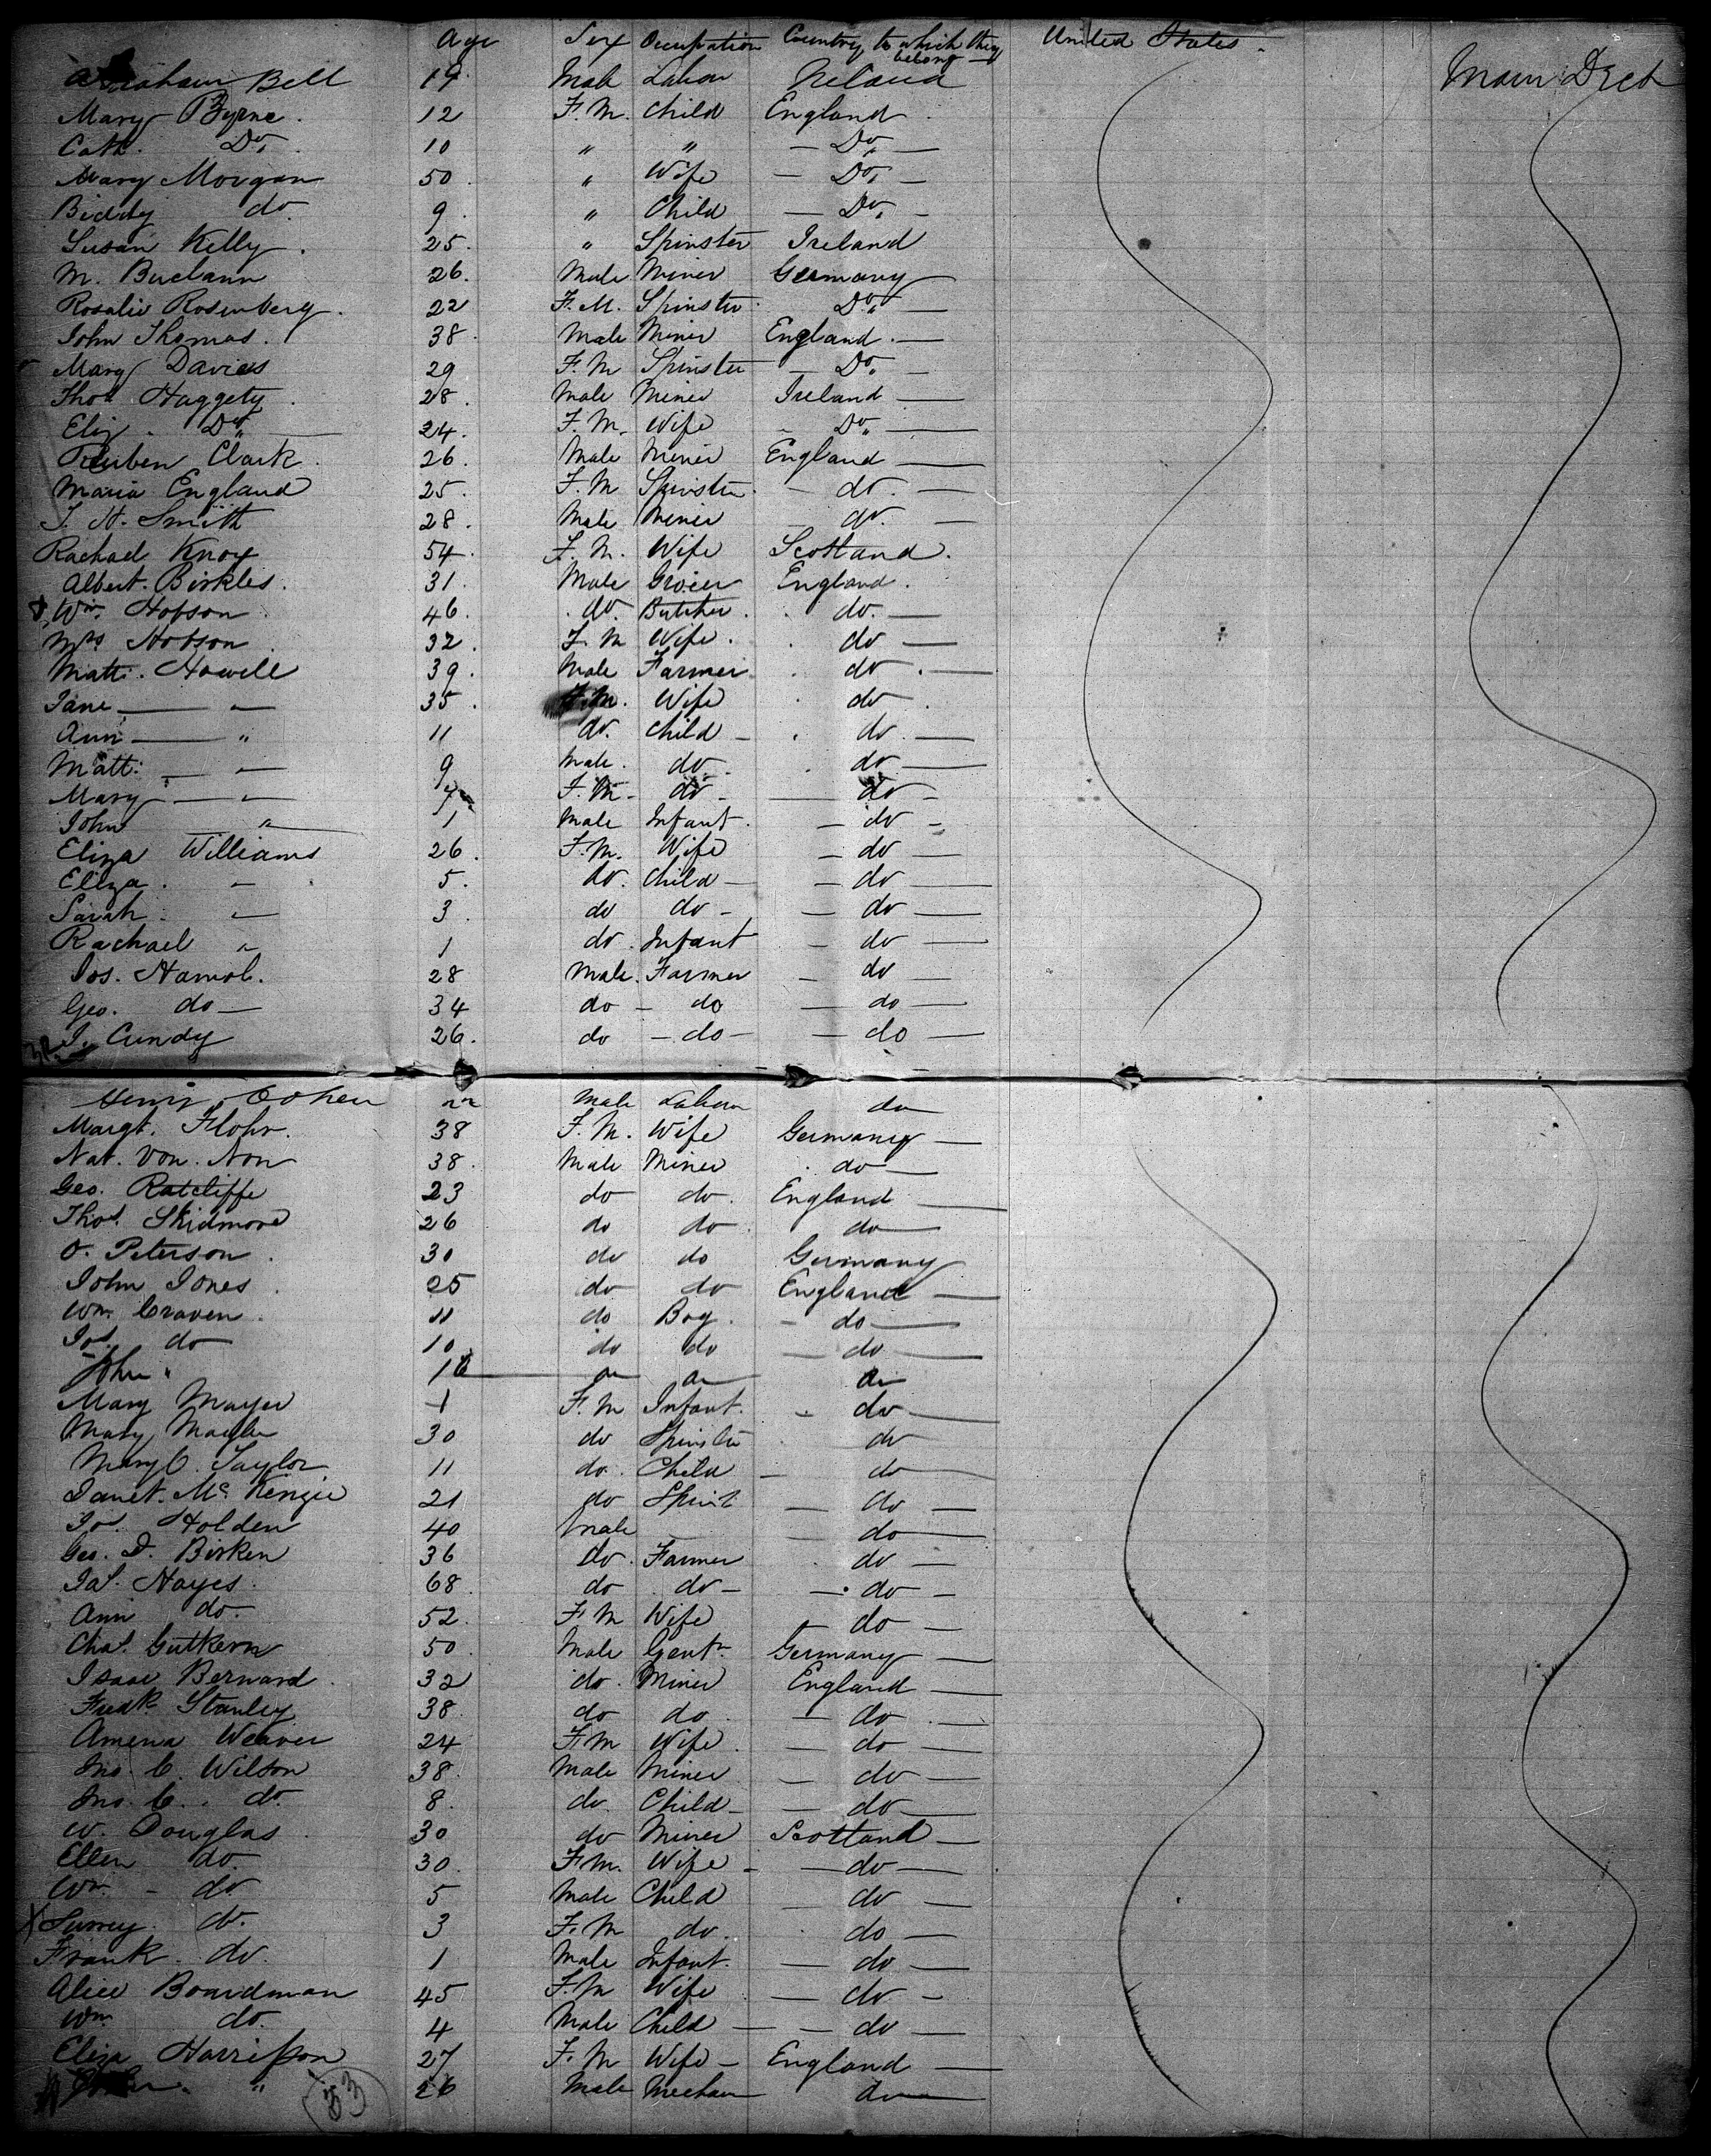 Age Sex Occupation Country to which they belong United States.
Abraham Bell 19 Male Labour Ireland Main Deck
Mary Byrne. 12 F.M. Child England
Cath. Do. 10 " " - Do. -
Mary Morgan 50. " Wife - Do. -
Biddy do. 9. " Child - Do. -
Susan Kelly. 25. " Spinster Ireland
M. Buclann 26. Male Miner Germany
Rosalie Rosenberg. 22 F.M. Spinster Do. -
John Thomas. 38. Male Miner England. -
Mary Davies 29 F.M Spinster - Do. -
Thos Haggety. 28. Male Miner Ireland -
Eliz. Do - 24. F.M. Wife - Do. -
Reuben Clark. 26. Male Miner England -
Maria England 25. F.M Spinster. - do. -
J. H. Smith 28. Male Miner - do. -
Rachael Knox 54. F.M. Wife Scotland.
Albert. Birkles. 31. Male Grocer England.
Wm. Hobson. 46. do. Butcher. do. -
Mrs Hobson. 32. F.M Wife. do -
Matt. Howell 39. Male Farmer. do. -
Jane - " 35. F.M. Wife do.
Ann - " 11 do. Child - do. -
Matt. - " 9 Male. do. do -
Mary - " 7 F.M. do - - do -
John " 1 Male Infant. - do -
Eliza Williams 26. F.M. Wife - do -
Eliza. " 5. do. Child - - do -
Sarah. " 3. do do - - do -
Rachael " 1 do. Infant - do -
Jos. 28 Male. Farmer - do -
Geo. do - 34 do - do - do -
J. Cundy 26. do - do - - do -
Henry Cohen 22 Male Labour do
Margt. Flohr. 38 F.M. Wife Germany -
Nat. Von. Non 38. Male Miner. do -
Geo. Ratcliffe 23 do do. England -
Thos. Skidmore 26 do do. do -
O. Peterson. 30 do do Germany
John Jones. 25 do do England -
Wm. Craven. 11 do Boy. - do -
Jos. do 10 do do - do -
John " 10 do do do
Mary Mayer 1 F.M Infant. - do -
Mary 30 do Spinster. do
Mary C. Taylor 11 do. Child - do
Janet. McKenzie 21 do Spinst - do -
Jos. Holden 40 Male - - do -
Geo. D. Birken 36 do. Farmer. do -
Jas. Hayes. 68. do do - - do -
Ann do. 52. F.M Wife do -
Chas. Gutkern 50. Male Gentn. Germany -
Isaac Bernard. 32 do. Miner England -
Fredk. Stanley 38. do do. - do. -
Amenia Weaver 24 F.M Wife. - do -
Jno. C. Wilson 38. Male Miner - do -
Jno. C. do. 8. do. Child - - do -
W. Douglas. 30 do Miner Scotland -
Ellen do. 30. F.M. Wife - - do -
Wm. - do 5 Male Child do -
X do. 3 F.M do. do -
Frank. do. 1 Male Infant. - do -
Alice Boardman 45 F.M Wife - do -
Wm. do. 4 Male Child - - do -
Eliza Harrisson 27 F.M Wife - England -
" 26 Male Mechan do
33